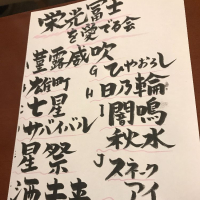 栄光冨士
を愛でる会
菫露威吹
雄町
七星
サバイバル
星祭
酒未来
G ひやおろし
H 日乃輪
I 闇鳴
秋水
J スネーク
アイ